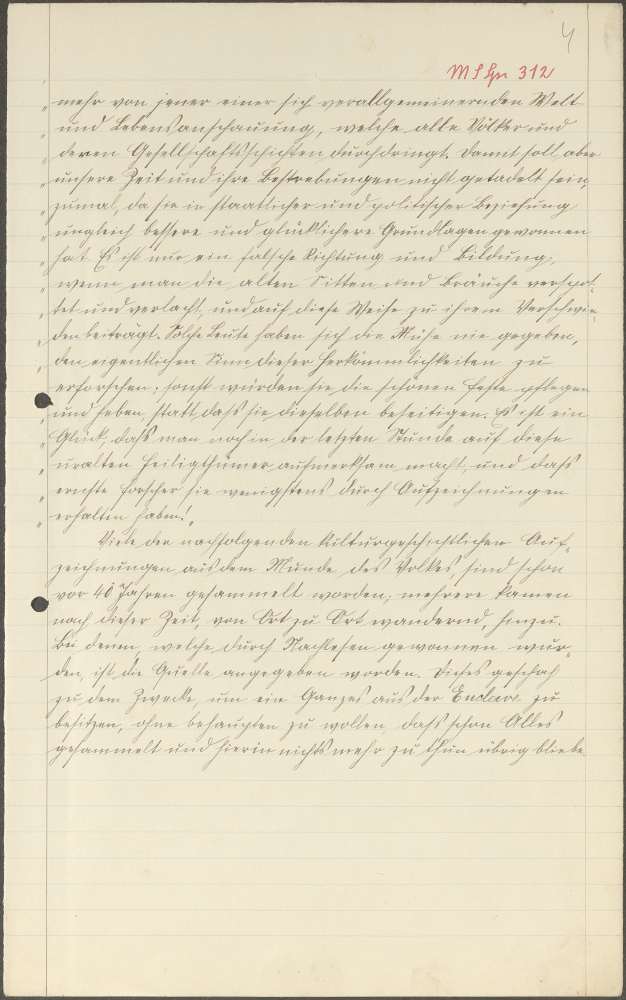 4
MS Gn 312
„ mehr von jener einer sich verallgemeinernden Welt
„ und Lebensanschauung, welche alle Völker und
„ deren Gesellschaftsschichten durchdringt. Damit soll aber
„ unsere Zeit und ihre Bestrebungen nicht getadelt sein,
„ zumal, da sie in staatlicher und politischer Beziehung
„ ungleich bessere und glücklichere Grundlagen gewonnen
„ hat. Es ist nur ein falsche Richtung und Bildung,
„ wenn man die alten Sitten und Bräuche verspot-
„ tet und verlacht, und auf diese Weise zu ihrem Verschwin-
„ den beiträgt. Solche Leute haben sich die Mühe nie gegeben,
„ den eigentlichen Sinn dieser Herkömmlichkeiten zu
„ erforschen; sonst würden sie die schönen Feste pflegen
„ und heben, statt daß sie dieselben beseitigen. Es ist ein
„ Glück, daß man noch in der letzten Stunde auf diese
„ uralten Heiligthümer aufmerksam macht, und daß
„ ernste Forscher sie wenigstens durch Aufzeichnungen
„ erhalten haben!"
Viele der nachfolgenden kulturgeschichtlichen Auf-
zeichnungen aus dem Munde des Volkes sind schon
vor 40 Jahren gesammelt worden; mehrere kamen
nach dieser Zeit, von Ort zu Ort wandernd, hinzu.
Bei denen, welche durch Nachlesen gewonnen wur-
den, ist die Quelle angegeben worden. Dieses geschah
zu dem Zwecke, um ein Ganzes aus der Enclave zu
besitzen, ohne behaupten zu wollen, daß schon Alles
gesammelt und hierin nichts mehr zu thun übrig bliebe